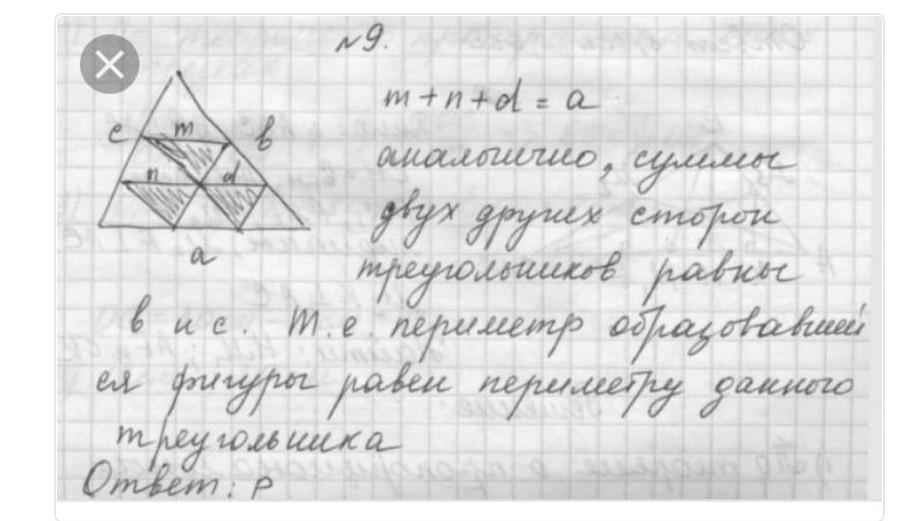 №9.
c m b
n d
a
m + n + d = a
аналогично, суммы
двух других сторон
треугольников равны
b и c. Т.е. периметр образовавшей
ся фигуры равен периметру данного
треугольника
Ответ: P